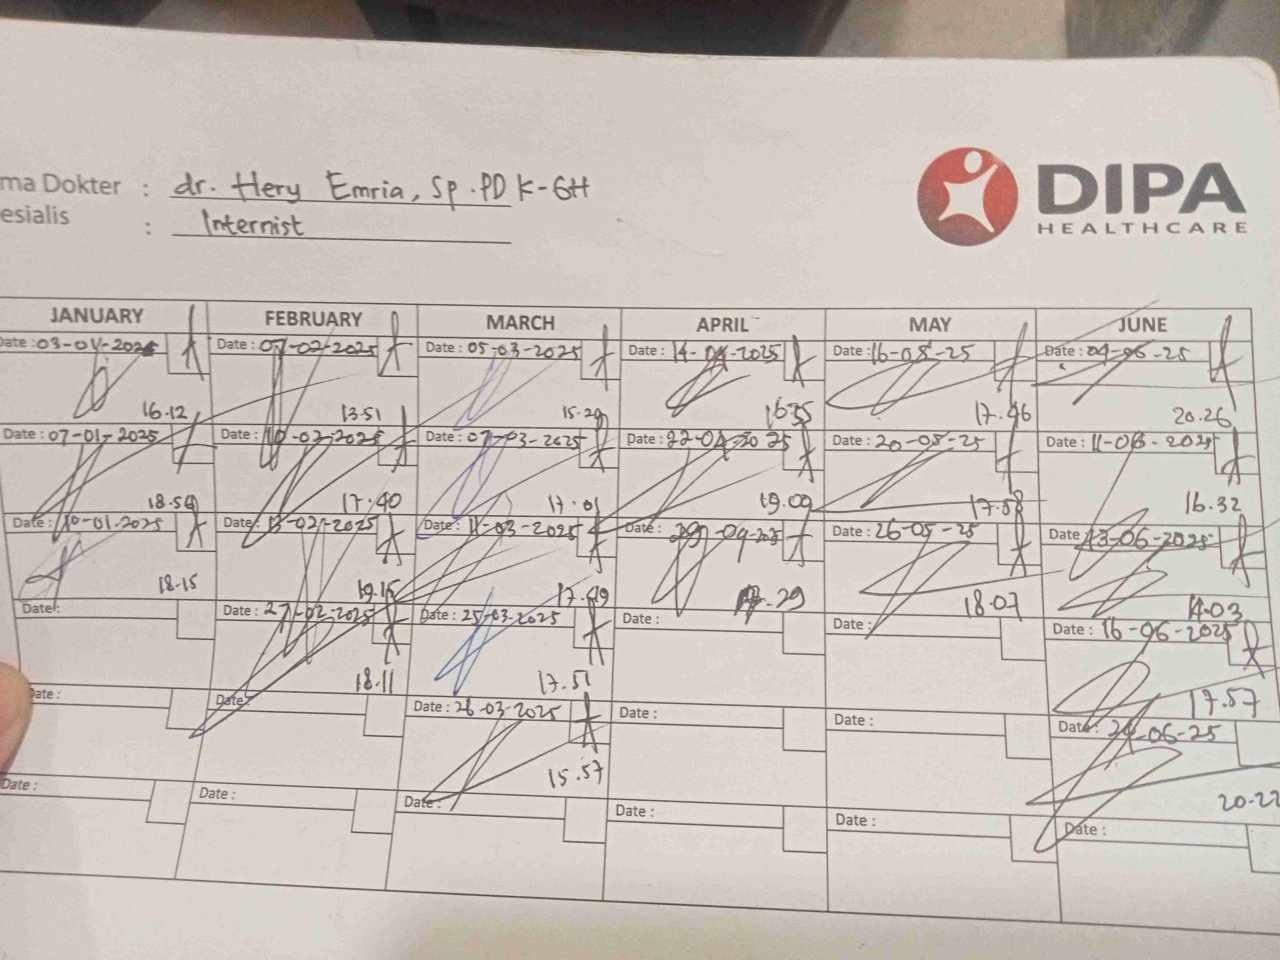 ma Dokter : dr. Hery Emria, Sp.PD K-GH
esialis : Internist
DIPA
HEALTHCARE
JANUARY FEBRUARY MARCH APRIL MAY JUNE
Date : 07-02-2025 Date : 05-03-2025 Date : 14-04-2025 Date : 16-05-25 Date : 04-06-25
16.12 13.51 15.29 16.35 17.46 20.26
Date : 07-01-2025 Date : 10-02-2025 Date : 07-03-2025 Date : 22-04-2025 Date : 20-05-25 Date : 11-06-2025
18.56 17.40 17.01 19.09 17.58 16.32
Date : 10-01-2025 Date : 13-02-2025 Date : 11-03-2025 Date : 29-04-2025 Date : 26-05-25 Date 13-06-2025
18.15 19.15 17.49 .29 18.07 14.03
Date : Date : 27-02-2025 Date : 25-03-2025 Date : Date : Date : 16-06-2025
18.11 17.51 17.57
Date : Date : Date : 26-03-2025 Date : Date : Date : -06-25
15.57 20.22
Date : Date : Date : Date : Date : Date :